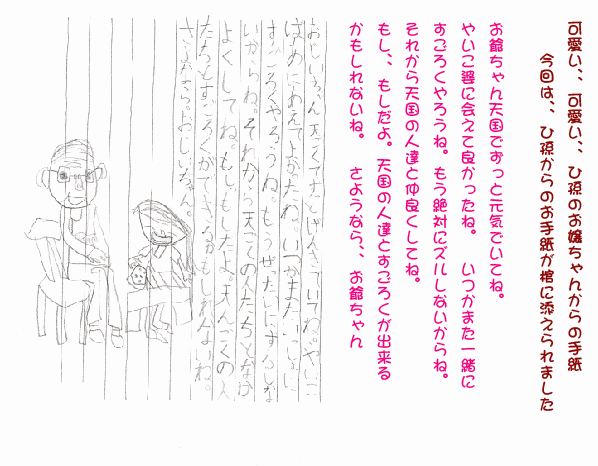 可愛い、、可愛い、、ひ孫のお嬢ちゃんからの手紙
今回は、、ひ孫からのお手紙が棺に添えられました
お爺ちゃん天国でずっと元気でいてね。
やいこ婆に会えて良かったね。 いつかまた一緒に
すごろくやろうね。もう絶対にズルしないからね。
それから天国の人達と仲良くしてね。
もし、、もしだよ。天国の人達とすごろくが出来る
かもしれないね。 さようなら、、お爺ちゃん
おじいちゃん天ごくでずっとげんきでいてね。やいこ
ばあにあえてよかったね。いつかまたいっしょに
すごろくやろうね。もうぜったいにずるしな
いからね。それから天ごくの人たちとなか
よくしてね。もし、もしだよ。天んごくの人
たちとすごろくができるかもしれないね。
さようなら。おじいちゃん。